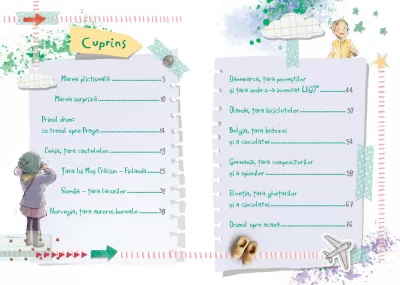 Cuprins
Marea plictiseală 5
Marea surpriză 10
Primul drum:
cu trenul spre Praga 14
Cehia, țara castelelor 19
Țara lui Moș Crăciun – Finlanda 25
Suedia – țara lacurilor 32
Norvegia, țara aurorei boreale 38
Danemarca, țara poveștilor
și țara unde s-a inventat LEGO® 44
Olanda, țara bicicletelor 50
Belgia, țara brânzei
și a ciocolatei 54
Germania, țara compozitorilor
și a geniilor 58
Elveția, țara ghețarilor
și a ciocolatei 67
Drumul spre acasă 76